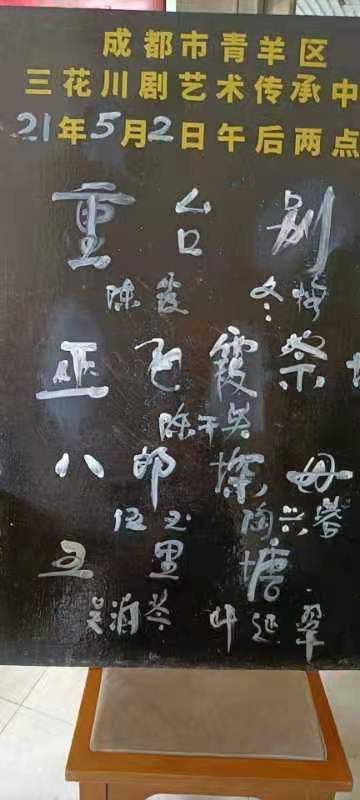 成都市青羊区
三花川剧艺术传承中
21年5月2日午后两点
重台别
陈霞 冬梅
巫飞霞祭
陈千英
八郎探母
伍云 陶兴蓉
五里塘
叶延翠